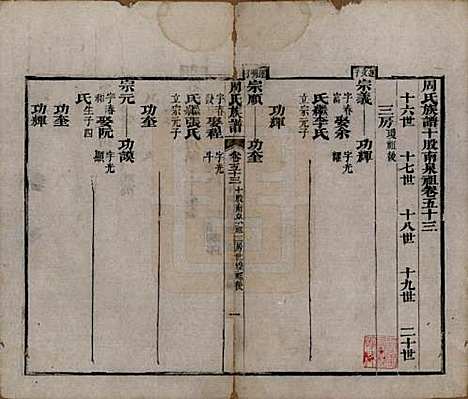 周氏族譜十股南泉祖卷五十三
十六世 十七世 十八世 十九世 二十世
三房琰祖後
宗義 功輝
字春富 娶余氏繼李氏
字光
功奎
宗順 功奎
字春發 娶程氏繼張氏
立宗元子
字光斗
周氏族譜 卷五十三 十股南泉祖三房世琰祖後 一
宗元 功謨
字春和 娶阮氏生子四
字光顯
功奎
功輝